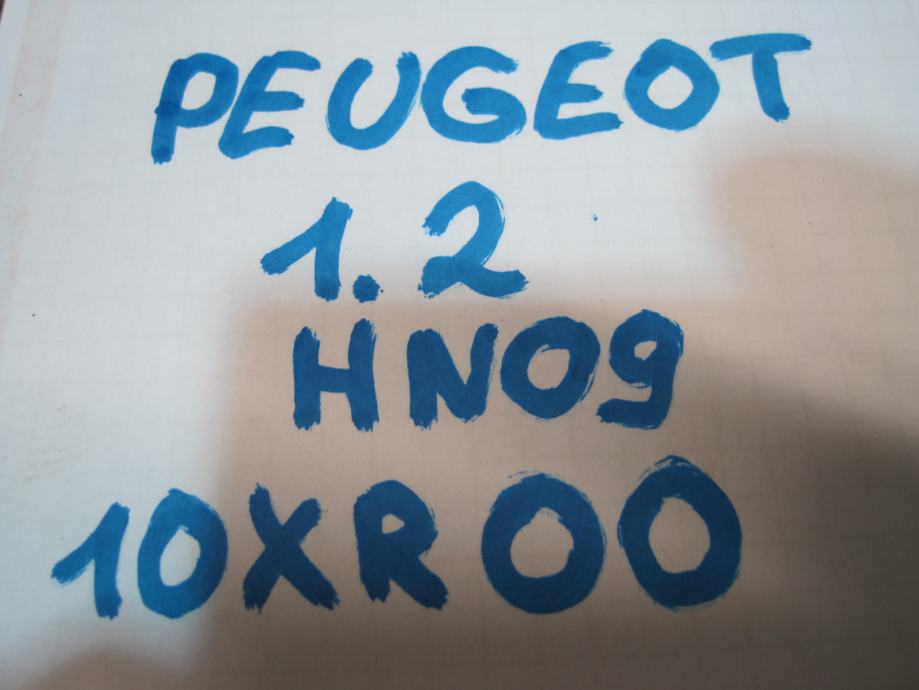 PEUGEOT
1.2
HN09
10XR00